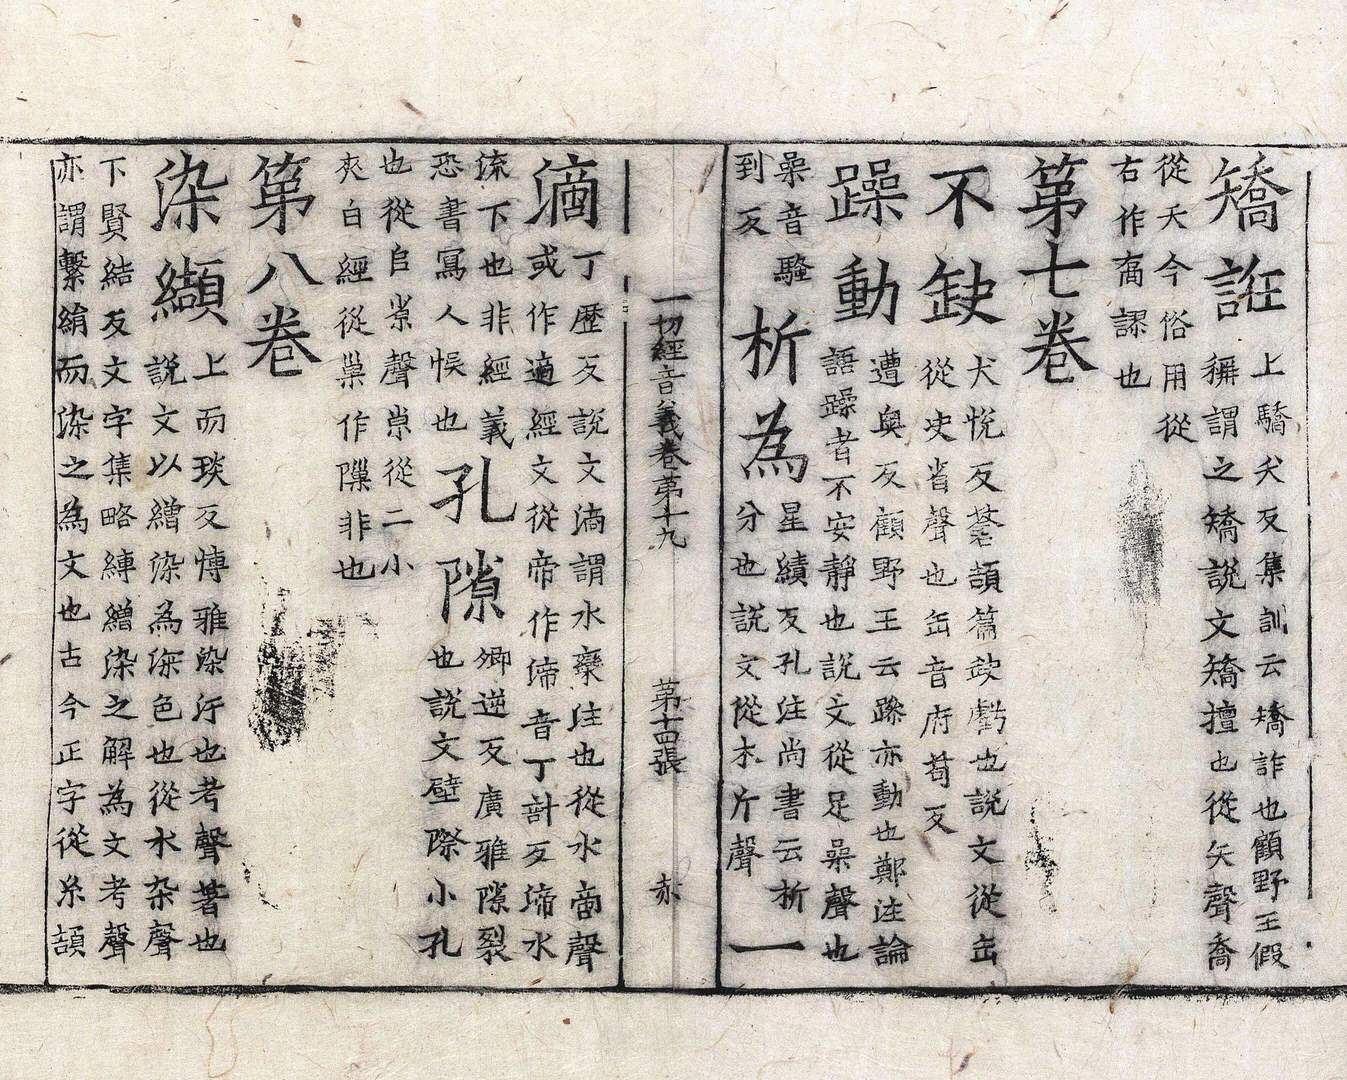 矯誑
上驕夭反集訓云矯詐也顧野王假
稱謂之矯說文矯擅也從矢聲喬
從夭今俗用從
右作矞謬也
第七卷
不缺
犬悅反蒼頡篇缺虧也說文從缶
從夬省聲也缶音府苟反
躁動
遭奧反顧野王云躁亦動也鄭注論
語躁者不安靜也說文從足喿聲也
喿音騷
到反
析為
星績反孔注尚書云析
分也說文從木斤聲
一
一切經音義卷第十九 第十四張 赤
滴
丁歷反說文滴謂水欒注也從水啇聲
或作適經文從帝作渧音丁計反渧水
流下也非經義
恐書寫人悞也
孔隙
卿逆反廣雅隙裂
也說文壁際小孔
也從𨸏𡭴聲𡭴從二小
夾白經從巢作隟非也
第八卷
染纈
上而琰反博雅染汙也考聲著也
說文以繒染為深色也從木杂聲
下賢結反文字集略縛繒染之解為文考聲
亦謂繫絹而染之為文也古今正字從糸頡